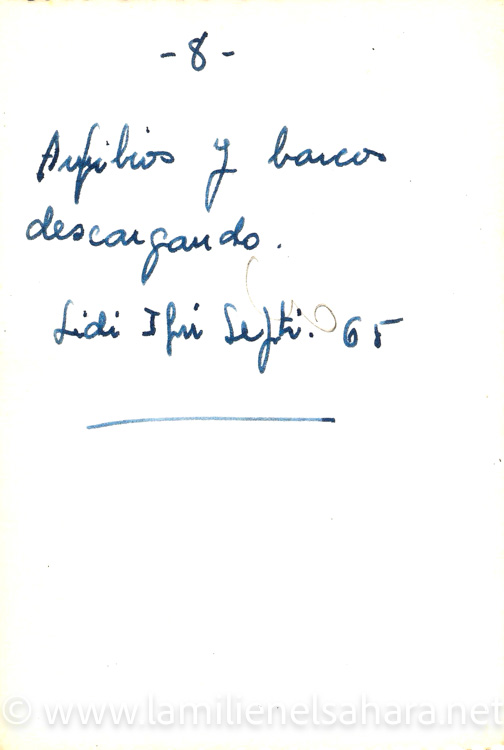 - 8 -
Anfibios y barcos
descargando.
Sidi Ifni Septi. 65
© www.lamilienelsahara.net